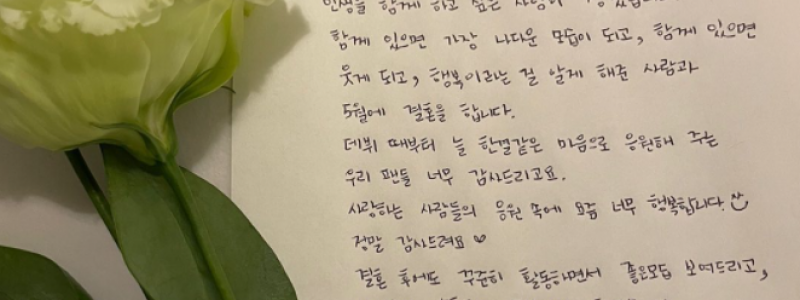 인생을 함께 하고 싶은 사람이
함께 있으면 가장 나다운 모습이 되고, 함께 있으면
웃게 되고, 행복이라는 걸 알게 해준 사람과
5월에 결혼을 합니다.
데뷔 때부터 늘 한결같은 마음으로 응원해 주는
우리 팬들 너무 감사드리고요.
사랑하는 사람들의 응원 속에 요즘 너무 행복합니다.^^
정말 감사드려요 ♡
결혼 후에도 꾸준히 활동하면서 좋은모습 보여드리고,